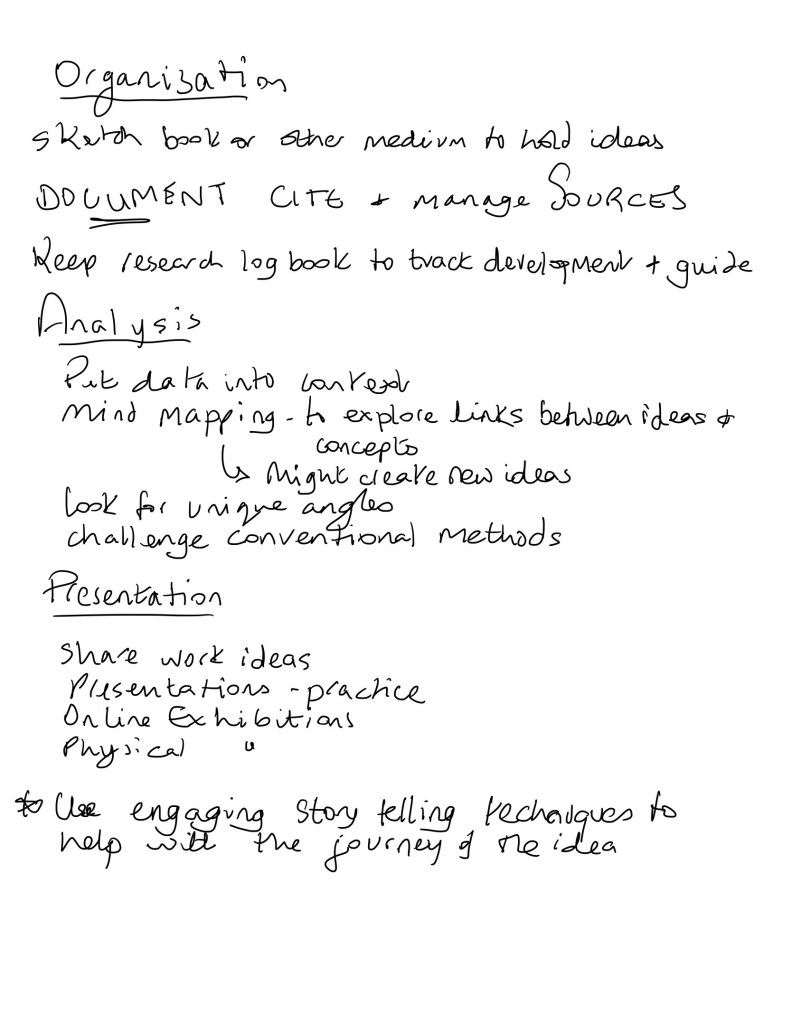 Organisation
Sketch book or other medium to hold ideas
DOCUMENT CITE + manage SOURCES
Keep research log book to track development + guide
Analysis
Put data into context
Mind Mapping - to explore links between ideas +
concepts
↳ Might create new ideas
Look for unique angles
challenge conventional methods
Presentation
Share work ideas
Presentations - practice
Online Exhibitions
Physical "
* Use engaging story telling techniques to
help with the journey of the idea